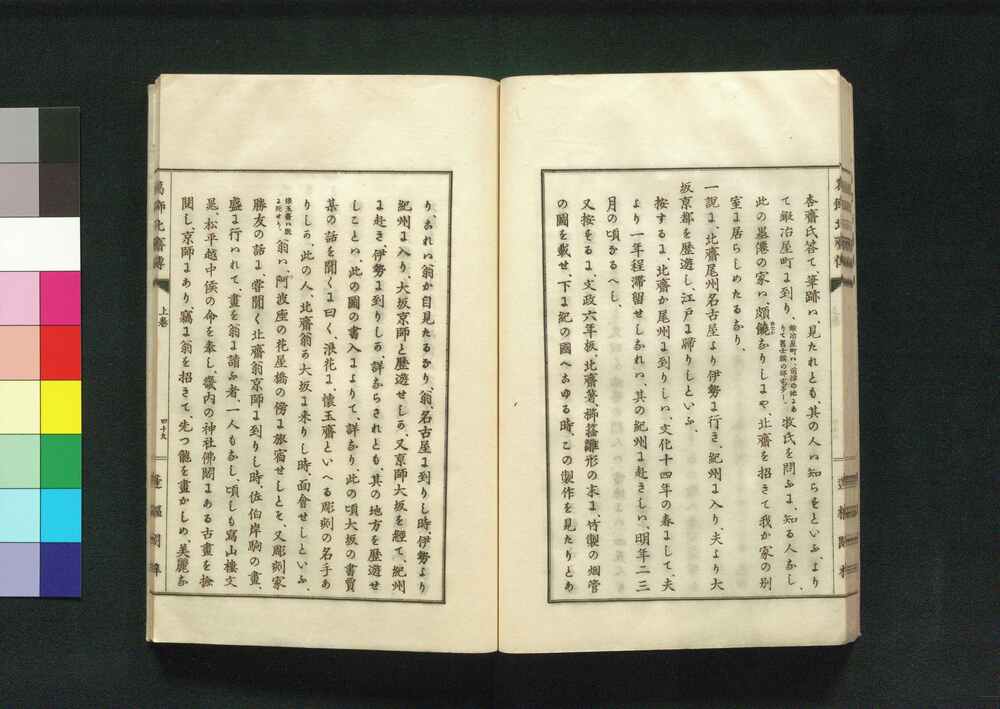 杏齋氏答て、筆跡ハ、見たれとも、其の人ハ知らすといふ、より
て鍛冶屋町に到り、
牧氏を問ふに、知る人なし、
此の墨僊の家ハ、頗饒なりしにや、北齋を招きて我か家の別
室に居らしめたるなり、
一説に、北齋尾州名古屋より伊勢に行き、紀州に入り、夫より大
坂京都を歴遊し、江戸に歸りしといふ、
按するに、北齋か尾州に到りしハ、文化十四年の春にして、夫
より一年程滞留せしなれハ、其の紀州に赴きしハ、明年二三
月の頃なるへし、
又按するに、文政六年板、北齋著、櫛䈇雛形の末に、竹製の烟管
の圖を載せ、下に紀の國へこゆる時、この製作を見たりとあ
り、されハ翁か自見たるなり、翁、名古屋に到りし時、伊勢より
紀州に入り、大坂京師と歴遊せしか、又京師大坂を經て、紀州
に赴き、伊勢に到りしか、詳ならされとも、其の地方を歴遊せ
しことハ、此の圖の書入によりて、詳なり、此の頃大坂の書賈
某の話を聞くに曰く、浪花に、懐玉齋といへる彫刻の名手あ
りしか、此の人、北齋翁か大坂に来りし時、面會せしといふ、
翁ハ、阿波座の花屋橋の傍に旅宿せしとそ、又彫刻家
勝友の話に、嘗聞く北齋翁京師に到りし時、佐伯岸駒の畫、
盛に行ハれて、畫を翁に請ふ者、一人もなし、頃しも寫山樓文
晁、松平越中侯の命を奉し、畿内の神社佛閣にある古畫を撿
閲し、京師にあり、竊に翁を招きて、先つ龍を畫かしめ、美麗な
上卷
四十九